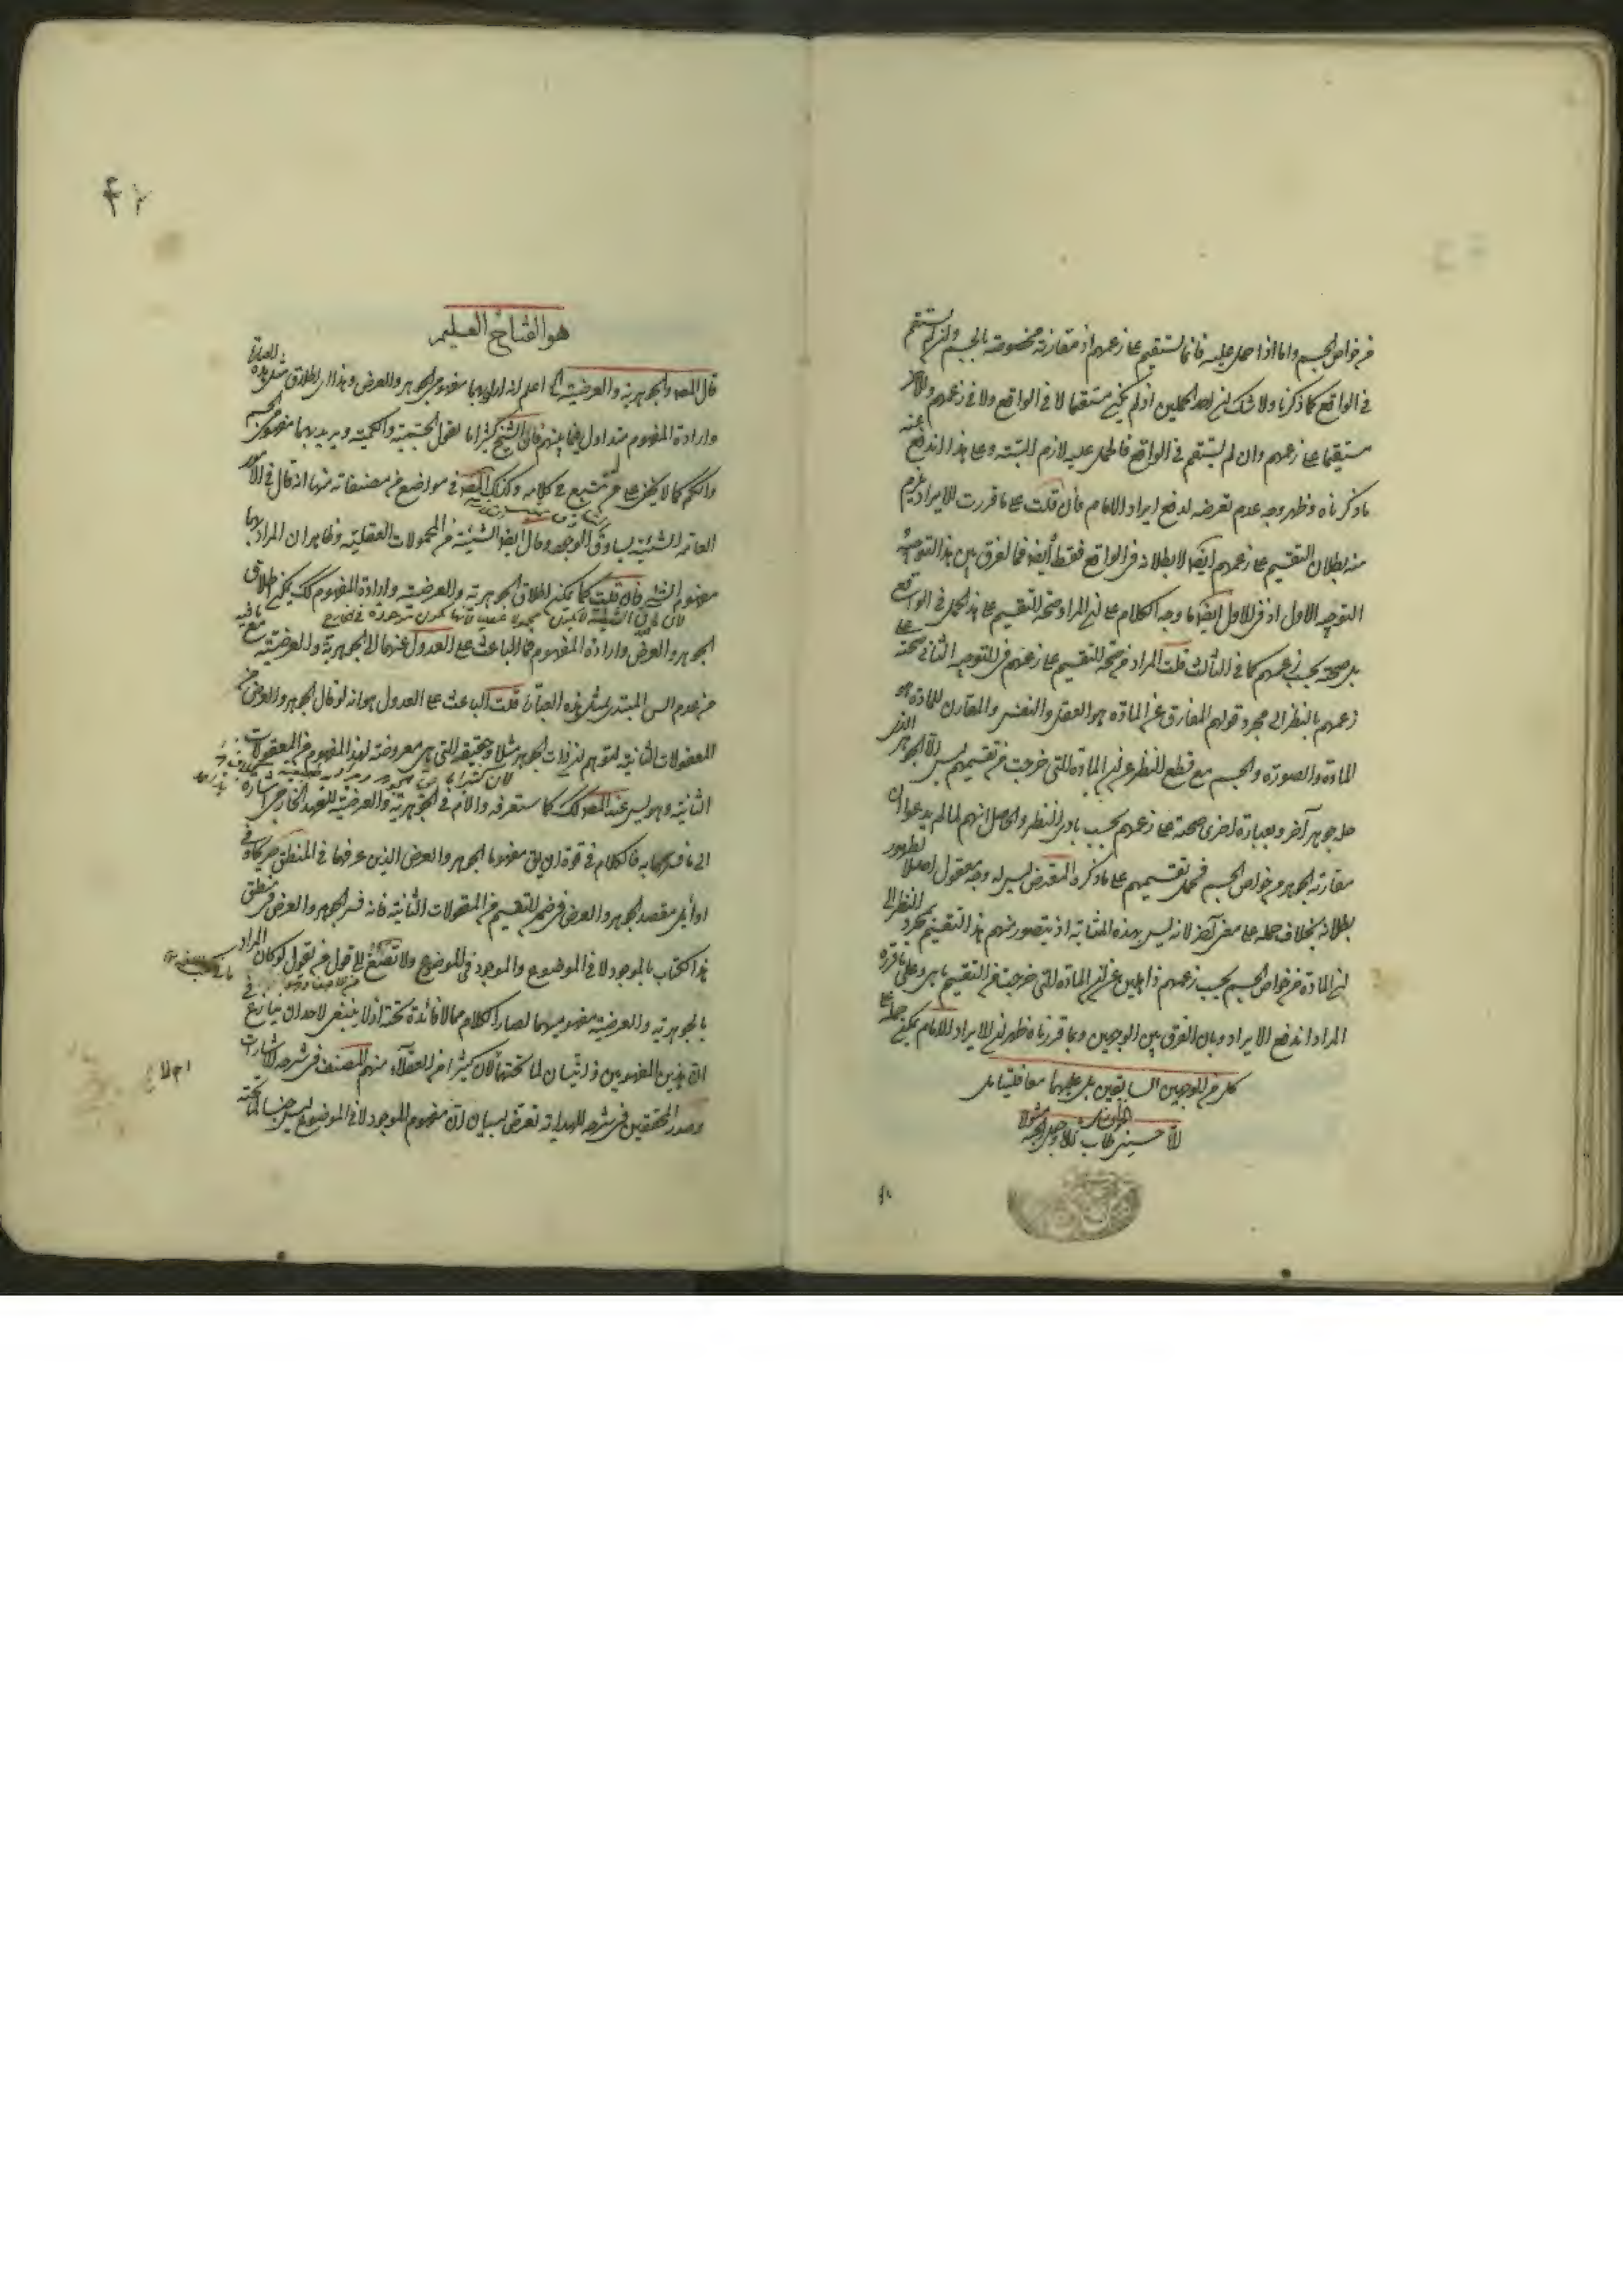 من خواص الجسم واما اذا حمل عليه فانما يستقيم على زعمهم اذ مقارنة مخصوصة بالجسم وان لم يستقم
في الواقع كما ذكرنا ولا شك ان احد الحملين اذا لم يكن مستقيما لا في الواقع ولا في زعمهم والاخر
مستقيما على زعمهم وان لم يستقم في الواقع فالحمل عليه لازم البتة وعلى هذا اندفع عنه
ما ذكرناه وظهر وجه عدم تعرضه لدفع ايراد الامام فان قلت على ما قررت للايراد يلزم
منه بطلان التقسيم على زعمهم ايضا لا بطلانه في الواقع فقط ايضا فما الفرق بين هذا التوجيه
التوجيه الاول اذ في الاول ايضا ما وجه الكلام على ان المراد صحة التقسيم على هذا الحمل في الواقع
بل صحته بحسب زعمهم كما في الثالث قلت المراد من صحة التقسيم على زعمهم في التوجيه الثاني صحته على
زعمهم بالنظر الى مجرد قولهم المفارق عن المادة هو العقل والنفس والمقارن للمادة هو
المادة والصورة والجسم مع قطع النظر عن ان المادة التي خرجت من تقسيمهم ليس الا الجوهر الذي
حله جوهر آخر وبعبارة اخرى صحته على زعمهم بحسب بادي النظر والحاصل انهم لما لم يدعوا ان
مقارنة الجوهر من خواص الجسم فحمل تقسيمهم على ما ذكره المعترض ليس له وجه معقول اصلا لظهور
بطلانه بخلاف حمله على معنى آخر لانه ليس بهذه المثابة اذ يتصور منهم هذا التقسيم بمجرد النظر الى
ان المادة من خواص الجسم بحسب زعمهم ذاهلين عن ان المادة التي خرجت من التقسيم ما هي وعلى ما قرره
المراد اندفع الايراد وبان الفرق بين الوجهين وبما قررناه ظهر ان الايراد للامام يمكن حمله على
كل من الوجهين السابقين بل عليهما معا فليتأمل
لآقا حسين طاب ثراه وجعل الجنة مثواه
هو الفتاح العليم
قال المص والجوهرية والعرضية الخ اعلم انه اراد بهما مفهومي الجوهر والعرض وهذا اي اطلاق مثل هذه العبارة
وارادة المفهوم متداول فيما بينهم فان الشيخ كثيرا ما يقول الجسمية والكمية ويريد بهما مفهومي الجسم
والكم كما لا يخفى على من تتبع في كلامه وكذلك المص في مواضع من مصنفاته منها انه قال في الامور
العامة الشيئية يساوق الوجود وقال ايضا الشيئية من المحمولات العقلية وظاهر ان المراد بها
مفهوم الشيء فان قلت كما يمكن اطلاق الجوهرية والعرضية وارادة المفهوم كذلك يمكن اطلاق
الجوهر والعرض وارادة المفهوم فما الباعث على العدول عنهما الى الجوهرية والعرضية مع ما فيه
من عدم انس المبتدي بمثل هذه العبارة قلت الباعث على العدول هو انه لو قال الجوهر والعرض من
المعقولات الثانية لتوهم ان ذات الجوهر مثلا وحقيقته التي هي معروضة لهذا المفهوم من المعقولات
الثانية وهو ليس عند المص كذلك كما ستعرفه واللام في الجوهرية والعرضية للعهد الخارجي اشارة
الى ما فسرهما به فالكلام في قوة ان يق مفهوما الجوهر والعرض الذين عرفهما في المنطق
اوائل مقصد الجوهر والعرض في ضمن التقسيم من المعقولات الثانية فانه فسر الجوهر والعرض في منطق
هذا الكتاب بالموجود لا في الموضوع والموجود في الموضوع ولا تصغ الى قول من يقول لو كان المراد
بالجوهرية والعرضية مفهوميهما لصار الكلام مما لا فائدة تحته اذ لا ينبغي لاحد ان ينازع في
ان هذين المفهومين ذاتيان لما تحتهما لان كثيرا من العقلاء منهم المصنف في شرحه للاشارات
وصدر المحققين في شرحه للهداية تعرض لبيان ان مفهوم الموجود لا في الموضوع ليس جنسا لما تحته